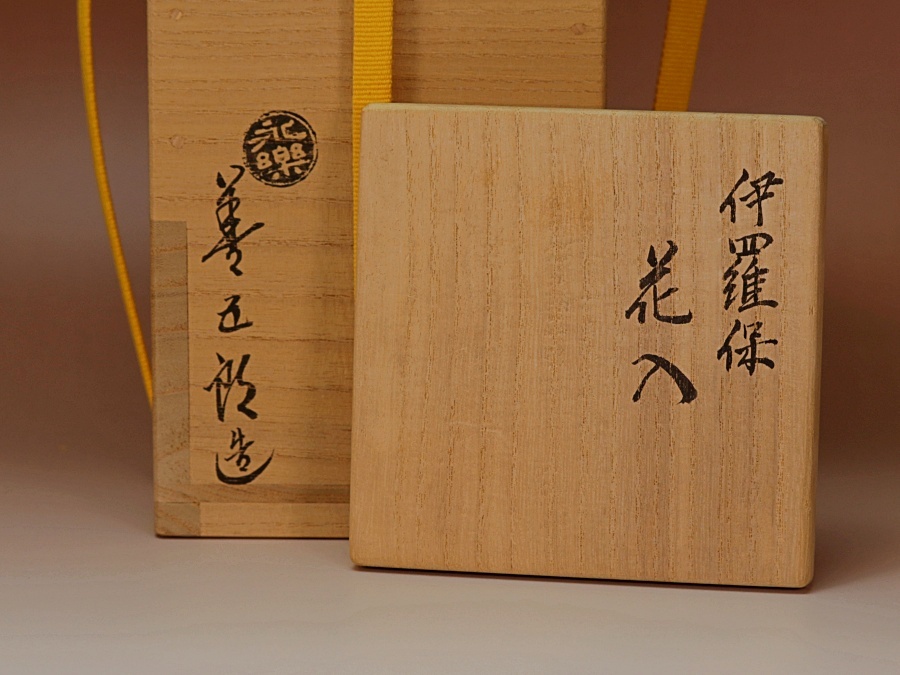 伊羅保
花入
永樂
善五郎造